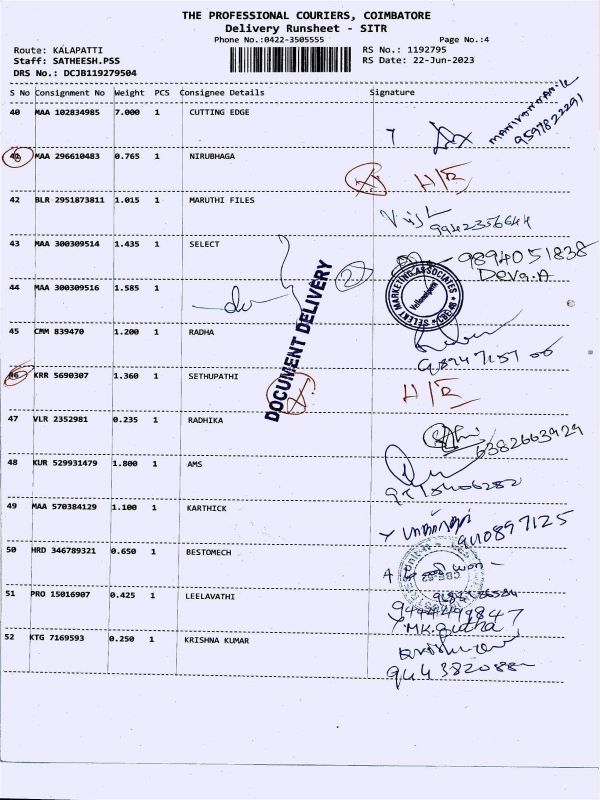 THE PROFESSIONAL COURIERS, COIMBATORE
Delivery Runsheet - SITR
Phone No.:0422-3505555 Page No.:4
Route: KALAPATTI RS No.: 1192795
Staff: SATHEESH.PSS RS Date: 22-Jun-2023
DRS No.: DCJB119279504
S No Consignment No Weight PCS Consignee Details Signature
40 MAA 102834985 7.000 1 CUTTING EDGE
9597822291
MAA 296610483 0.765 1 NIRUBHAGA
H/E
42 BLR 2951873811 1.015 1 MARUTHI FILES
9942356644
43 MAA 300309514 1.435 1 SELECT
9894051838
Deva.A
44 MAA 300309516 1.585 1
2
DOCUMENT DELIVERY
SELEKT MARKETING ASSOCIATES
45 CMM 839470 1.200 1 RADHA
46 KRR 5690307 1.360 1 SETHUPATHI
H/E
47 VLR 2352981 0.235 1 RADHIKA
6382663929
48 KUR 529931479 1.800 1 AMS
49 MAA 570384129 1.100 1 KARTHICK
9940897125
50 HRD 346789321 0.650 1 BESTOMECH
51 PRO 15016907 0.425 1 LEELAVATHI
52 KTG 7169593 0.250 1 KRISHNA KUMAR